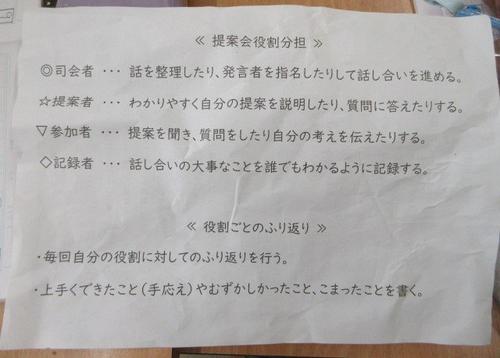 ≪ 提案会役割分担 ≫
◎司会者 ・・・ 話を整理したり、発言者を指名したりして話し合いを進める。
☆提案者 ・・・ わかりやすく自分の提案を説明したり、質問に答えたりする。
▽参加者 ・・・ 提案を聞き、質問をしたり自分の考えを伝えたりする。
◇記録者 ・・・ 話し合いの大事なことを誰でもわかるように記録する。
≪ 役割ごとのふり返り ≫
・毎回自分の役割に対してのふり返りを行う。
・上手くできたこと(手応え)やむずかしかったこと、こまったことを書く。